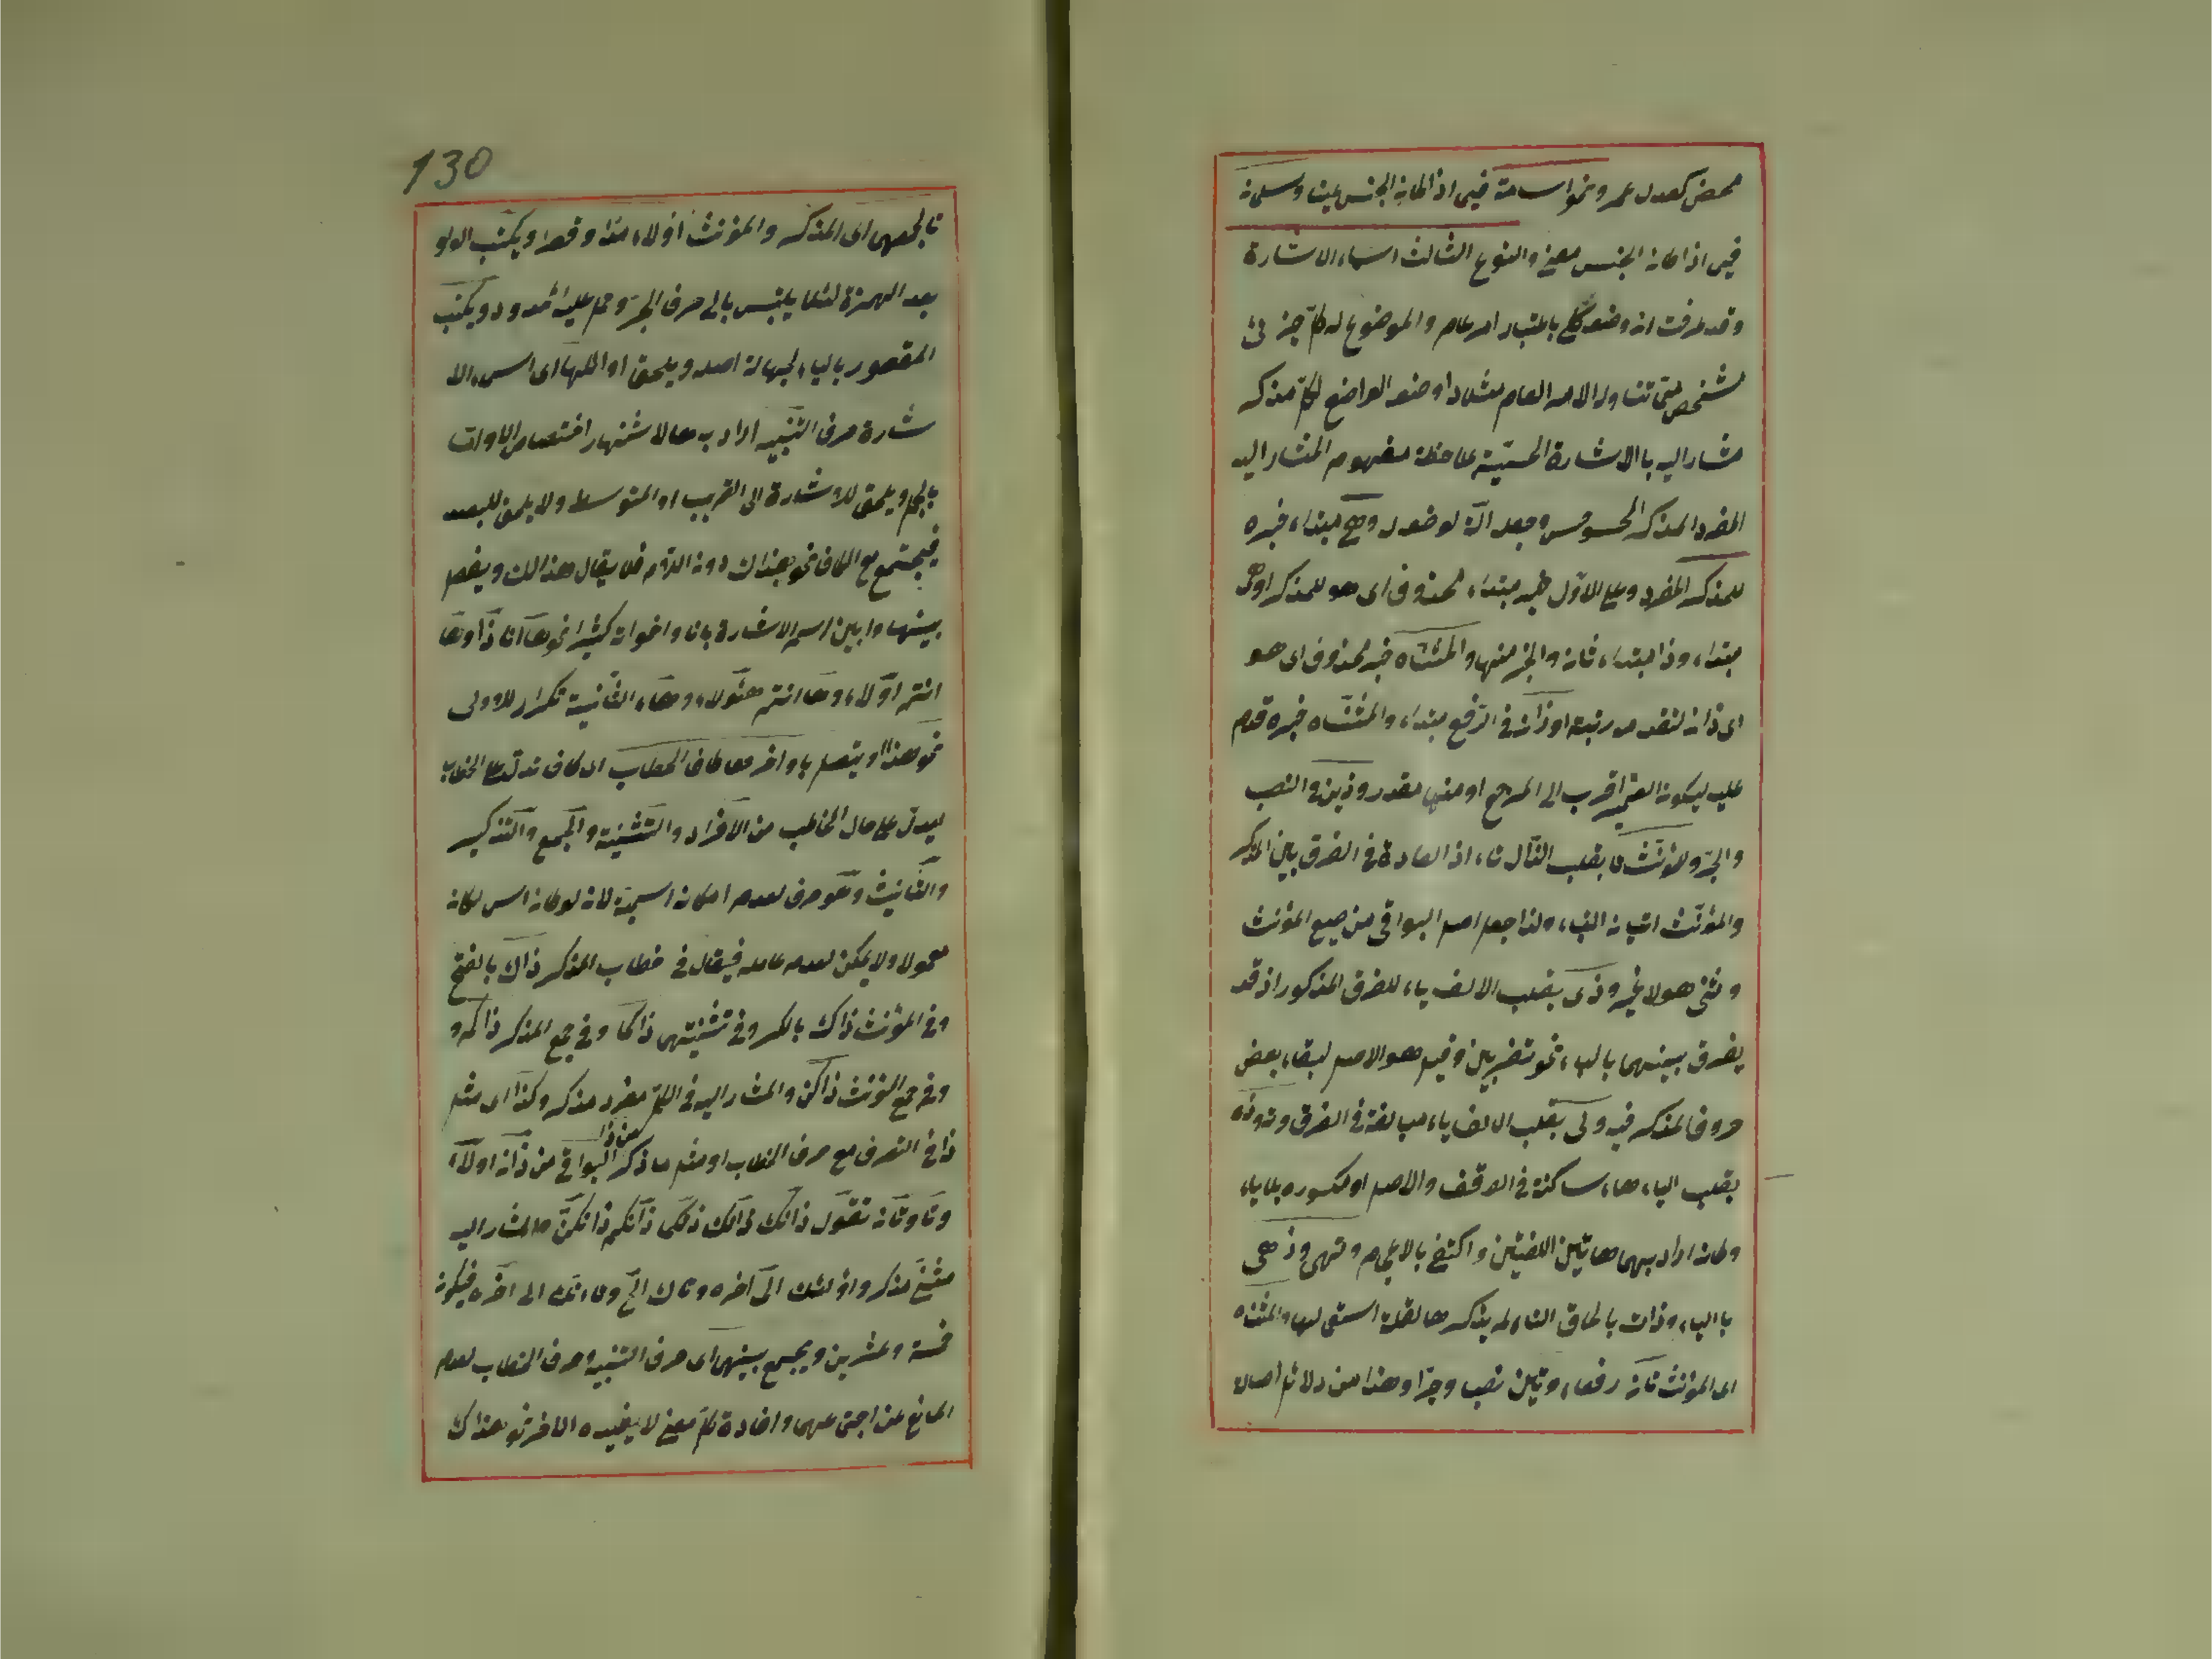 محض كعدل عمر ونحو اسامة فيما اذا كان الجنس عينا وسلمان
فيما اذا كان الجنس معنى والنوع الثالث اسماء الاشارة
وقد عرفت ان وضع كل باعتبار امر عام والموضوع له كل جزئى
مشخص يتناول الامر العام مثلا ذا وضع الواضع لكل مذكر
مشار اليه بالاشارة الحسية ملاحظة مفهوم المشار اليه
المفرد المذكر المحسوس وجعل آلة لوضعه وهى مبتداء خبره
للمذكر المفرد وعلى الاول خبر مبتداء محذوف اى هو للمذكر او
مبتداء وذا مبتداء ثان والخبر منها ولمثناه خبر محذوف اى هو
اى ذان لتقدمه رتبة او ذان فى الرفع مبتداء ولمثناه خبره قدم
عليه ليكون الضمير اقرب الى المرجع او منها مقدر وذين فى النصب
والجر وللمؤنث تا بقلب الذال تاء اذ العادة فى الفرق بين المذكر
والمؤنث اتيان التاء ولذا جعل اصل البواقى من صيغ المؤنث
وثنى هو لا غيره وذى بقلب الالف ياء للفرق المذكور اذ قد
يفرق بينهما بالياء نحو تضربين وقيل هو الاصل لبقاء بعض
حروف المذكر فيه وتى بقلب الالف ياء مبالغة فى الفرق وته وذه
بقلب الياء هاء ساكنة فى الوقف والاصل او مكسورة بلا ياء
وكان اراد بهما هاتين اللغتين واكتفى بالاعجام وتهى وذهى
بالياء وذات بالحاق التاء لم يذكرها لقلة استعمالها ولمثناه
اى المؤنث تان رفعا وتين نصبا وجرا وهذا من دلائل اصالة
130
تا لجمعهما اى المذكر والمؤنث اولاء مدا وقصرا ويكتب الواو
بعد الهمزة لئلا يلتبس بالى حرف الجر وحمل عليه الممدود ويكتب
المقصور بالياء لجهالة اصله ويلحق اوائلها اى اسماء الا
شارة حرف التنبيه اراد به ها لاشتهار اختصاص الا واما
بالجمل ويلحق للاشارة الى القريب او المتوسط ولا يلحق للبعيد
فيجتمع مع الكاف نحو هذاك دون اللام فلا يقال هذالك ويفصل
بينها وبين اسم الاشارة بانا واخواته كثيرا نحو ها انا ذا وها
انتم اولاء وها انتم هؤلاء وهاء الثانية تكرار للاولى
نحو هذا ويتصل باواخرها كاف الخطاب اى كاف تدل على الخطاب
ليدل على حال المخاطب من الافراد والتثنية والجمع والتذكير
والتانيث وهو حرف لعدم امكان اسميته لانه لو كان اسما لكان
معمولا ولا يمكن لعدم عامله فيقال فى خطاب المذكر ذاك بالفتح
وفى المؤنث ذاك بالكسر وفى تثنيتهما ذاكما وفى جمع المذكر ذاكم و
وفى جمع المؤنث ذاكن والمشار اليه فى الكل مفرد مذكر وكذا اى مثل
ذا فى التصرف مع حرف الخطاب او مثل ما ذكر من ذا البواقى من ذان اولاء
وتا وتان تقول ذانك ذانك ذانكما ذانكم ذانكن والمشار اليه
مثنى مذكر واولئك الى آخره وتاك الخ وتانك الى آخره فيكون
خمسة وعشرين ويجمع بينهما اى حرف التنبيه وحرف الخطاب لعدم
المانع عن اجتماعهما وافادة كل معنى لا يفيده الاخر نحو هذاك